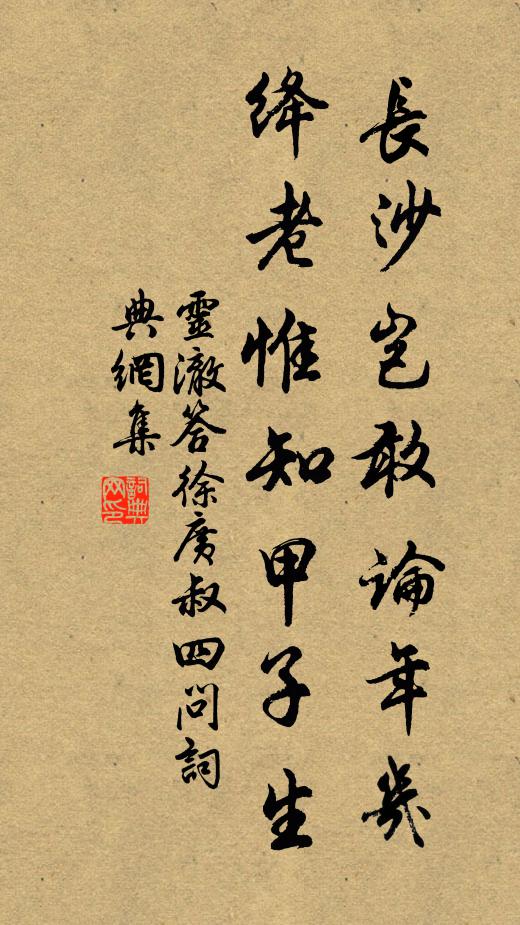 長沙豈敢論年幾
絳老惟知甲子生
靈澈答徐廣叔四問詞
典網集
詞典網印